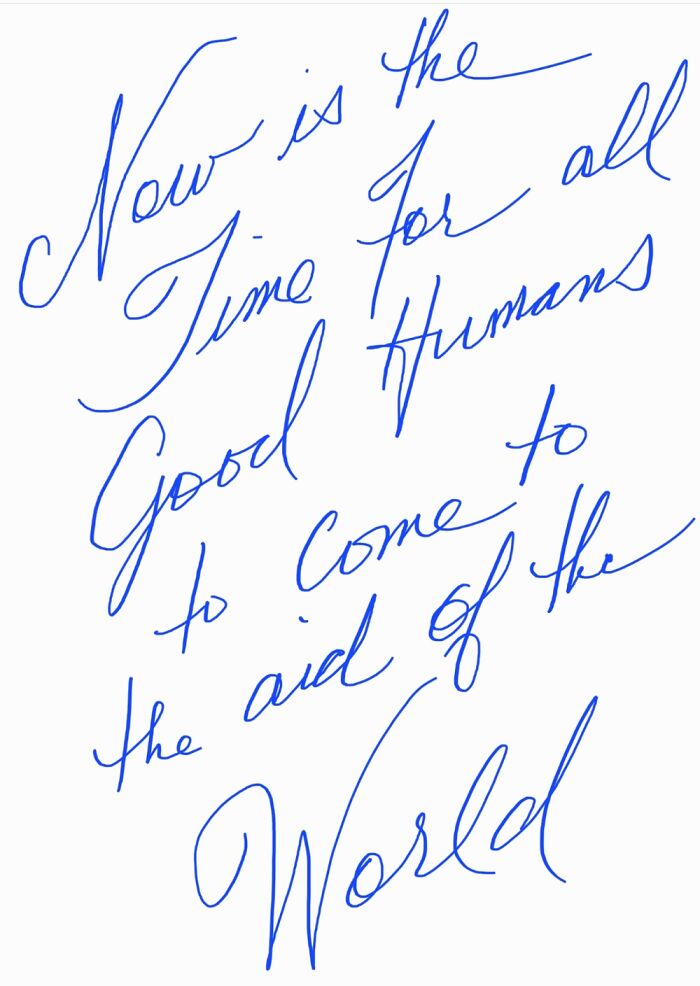 Now is the
Time For all
Good Humans
to come to
the aid of the
World